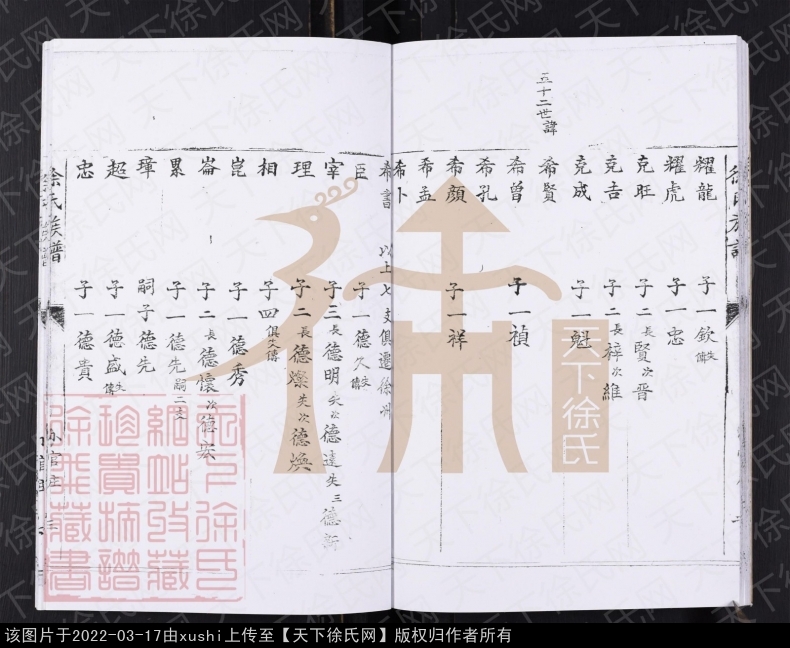 五十二世諱
耀龍 子一欽失傳
耀虎 子一忠
克旺 子二長賢次晋
克吉 子二長梓次維
克成 子一魁
希賢
希曾 子一禎
希孔
希顏 子一祥
希孟
希卜
希書 以上七支俱遷徐州
臣 子一德欠失傳
宰 子三長德明失次德達失三德新
理 子二長德燦失次德煥
相 子四俱失傳
崑 子一德秀
崙 子二長德懷次德宏
累 子一德先嗣二支
璋 嗣子德先
超 子一德盛失傳
忠 子一德貴
徐氏族譜
天下徐氏
天下徐氏网
该图片于2022-03-17由xushi上传至【天下徐氏网】版权归作者所有